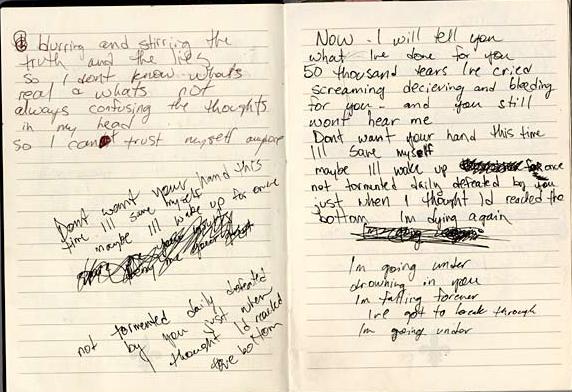 blurring and stirring the
truth and the lies
So I dont know whats
real a whats not
always confusing the thoughts
in my head
So I cant trust myself anymore
Dont want your hand this
time Ill save myself
maybe Ill wake up for once
not tormented daily defeated
by you just when
thought Id reached
the bottom
Now I will tell you
what Ive done for you
50 thousand tears Ive cried
screaming decieving and bleeding
for you - and you still
wont hear me
Dont want your hand this time
Ill save myself
maybe Ill wake up for once
not tormented daily defeated by you
just when I thought Id reached the
bottom Im dying again
Im going under
drowning in you
Im falling forever
Ive got to break through
Im going under